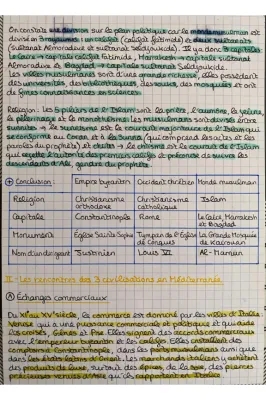 On constate une division sur le plan politique car le monde musulman est
divisé en 3 royaumes : un califat (califat fatimide) et deux sultanats
(sultanat Almoravide et sultanat Seldjoukide). Il y a donc 3 capitales
Le Caire → capitale califat fatimide, Marrakech → capitale sultanat
Almoravide et Bagdad → Capitale sultanat Seldjoukide.
Les villes musulmanes sont d'une grande richesse, elles possèdent
des universités, des bibliothèques, des souks, des mosquées et ont
de fines connaissances en sciences.
Religion : Les 5 piliers de l'Islam sont la prière, l'aumône, le jeûne,
le pèlerinage et le monothéisme. Les musulmans sont divisés entre
sunnites → le sunnisme est le courant majoritaire de l'Islam qui
se conforme au Coran, et à la Sunna (qui comprend les actes et les
paroles du prophète) et chiites → le chiisme est le courant de l'Islam
qui rejette l'autorité des premiers califes et préconise de suivre les
descendants d'Ali, gendre du prophète.
Conclusion : Empire byzantin Occident chrétien Monde musulman
Religion Christianisme orthodoxe Christianisme catholique Islam
Capitale Constantinople Rome Le Caire, Marrakech et Bagdad
Monument Eglise Sainte Sophie Tympan de l'Eglise de Conques La Grande Mosquée de Kairouan
Nom d'un dirigeant Justinien Louis VI Al-Mamun
II - Les rencontres des 3 civilisations en Méditerranée
A) Echanges commerciaux
Du XIe au XVe siècle, le commerce est dominé par les villes d'Italie.
Venise qui a une puissance commerciale et politique et qui aide
les croisés, Gênes et Pise. Elles signent des accords commerciaux
avec l'empereur byzantin et les califes. Elles installent des
comptoirs à Constantinople, dans les ports musulmans ainsi que
dans les états latins d'Orient. Les marchands italiens y achètent
des produits de luxe, surtout des épices, de la soie, des pierres
précieuses venues d'Asie qu'ils rapportent en Italie